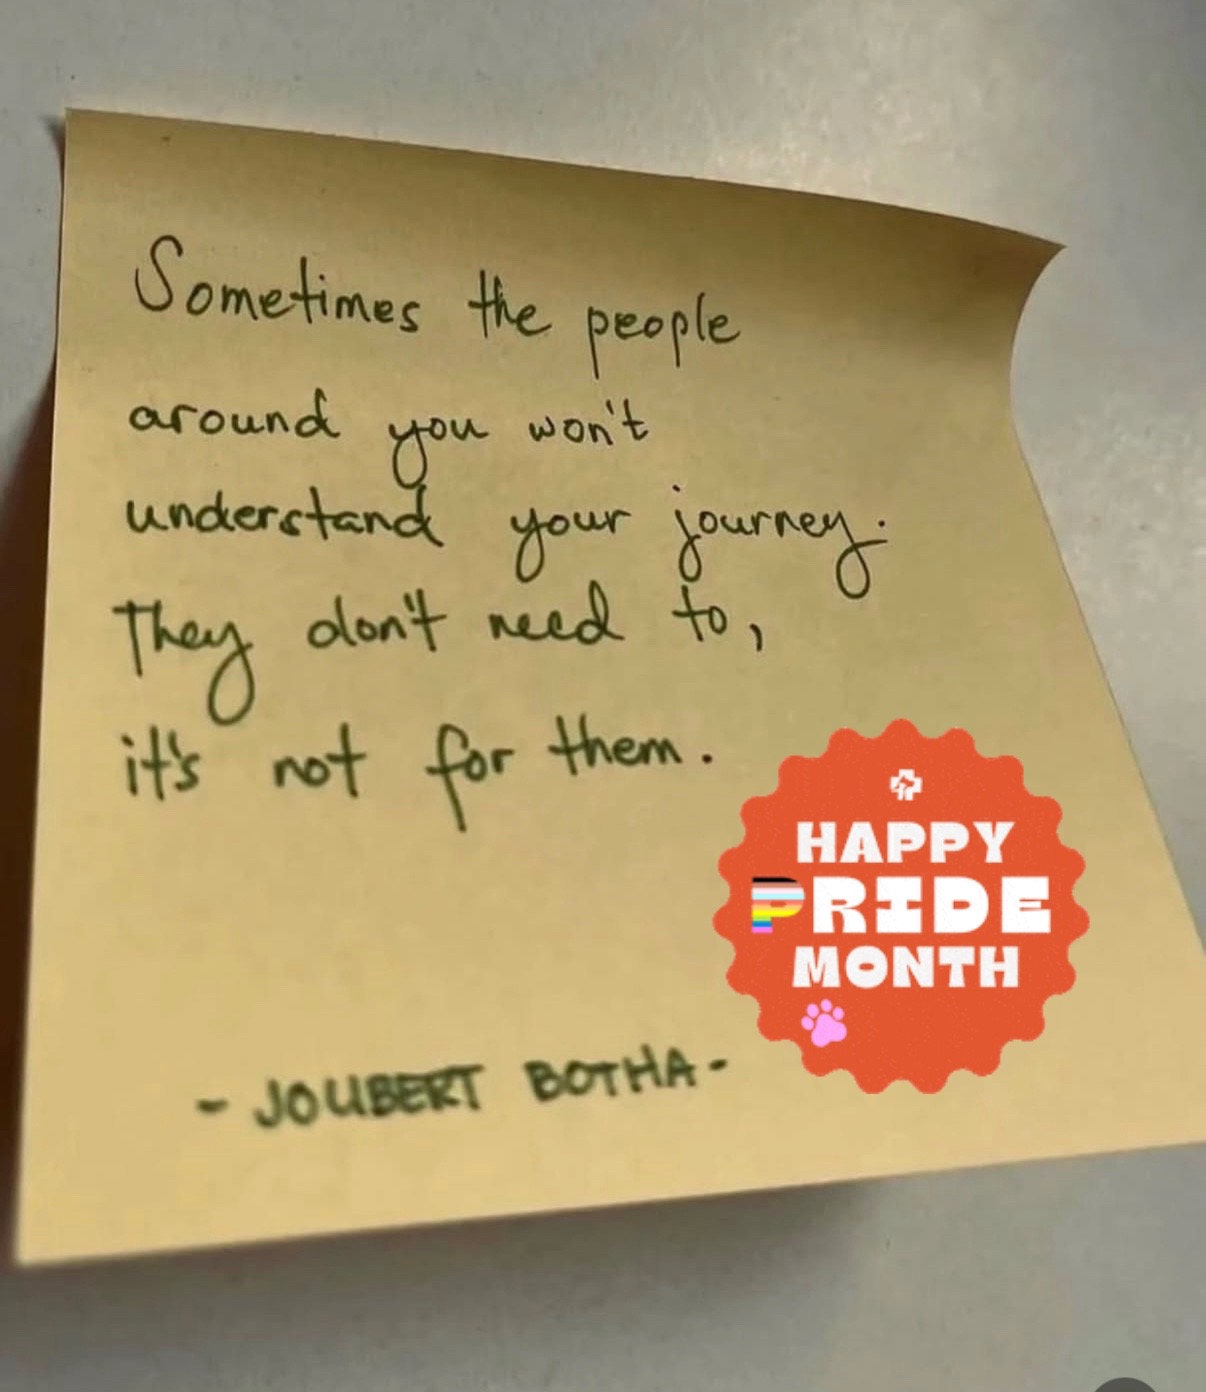 Sometimes the people
around you won't
understand your journey.
They don't need to,
it's not for them.
HAPPY
PRIDE
MONTH
- JOUBERT BOTHA -